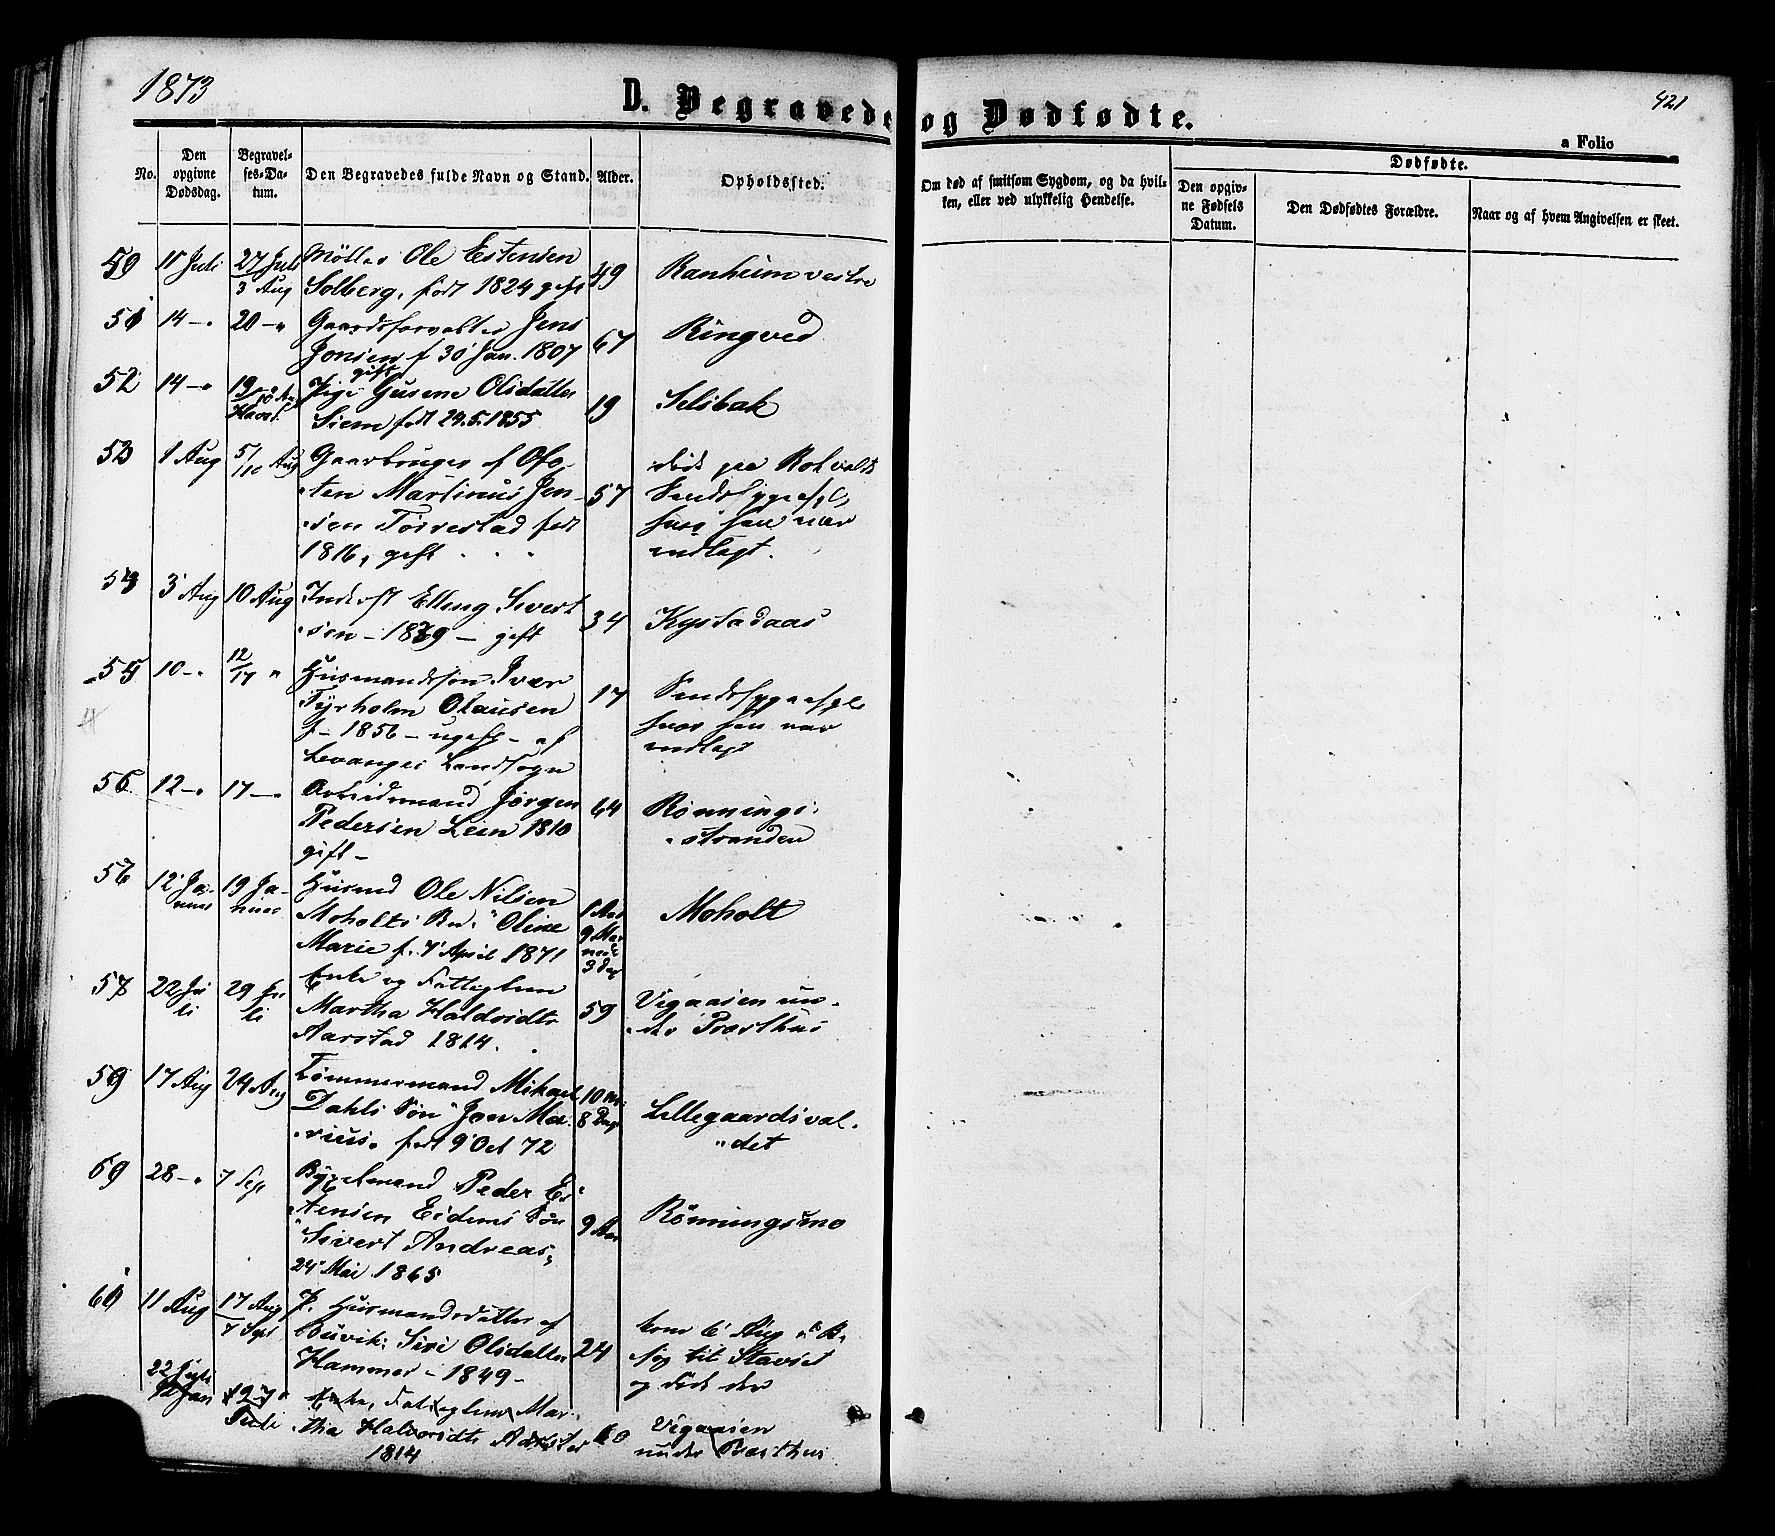 1873
D. Begravede og Dødfødte.
421
a Folio
No.
Den opgivne Dødsdag.
Begravelses-Datum.
Den Begravedes fulde Navn og Stand.
Alder.
Opholdssted.
Om død af smitsom Sygdom, og da hvilken, eller ved ulykkelig Hendelse.
Dødfødte.
Den opgivne Fødsels Datum.
Den Dødfødtes Forældre.
Naar og af hvem Angivelsen er skeet.
15 Juli 27 Juli Møller Ole Estensen 49 Ranheim vestre
3 Aug Solberg, født 1824 gift
51 14 - " 20 - " Gaardsforvalter Jens 67 Ringved
Jonsen f 30 Jan. 1807
gift
52 14 - " 19 Pige Gurine Olsdatter 19 Selsbak
Siem født 24.5.1855
53 1 Aug 5/10 Aug Gaardbruger af Ofo- 57 døde paa Rotvolds
ten Martinus Jen- Sindssygeasyl,
sen Torrestad født hvor han var
1816, gift indlagt.
54 3 Aug 10 Aug Inderst Elling Sivert 34 Kystadaas
sen - 1839 - gift
55 10 - " 12/17 " Husmandssøn Ivar 17 Sindssygeasyl
Tyrholm Olausen hvor han var
f - 1856 - ugift - af indlagt
Levanger Landsogn
56 12 - " 17 - " Arbeidsmand Jørgen 64 Rønnings-
Pedersen Leen 1810 stranden
gift -
12 Ja- 19 Ja- Husmd Ole Nilsen 1 Aar Moholt
nuar nuar Moholts Bn. "Oline 9 Maa
Marie f. 7 April 1871 neder
3 Dag
22 Ju 29 Ju Enke og Fattiglem 59 Vegaasen un-
li li Martha Halvordsdtr der Præsthus
Aarstad 1814.
59 17 Aug 24 Aug Tømmermand Mikael 10 M. Lillegaardsval-
Dahls Søn "Jon Ma- 8 Dage det
rius. født 9 Oct 72
28 - " 7 Sep Bygselmand Peder Es 9 Aar Rønningsmo
tensen Eidems Søn
Sivert Andreas,
24 Mai 1865
11 Aug 17 Aug P. Husmandsdatter af 24 kom 6 Aug
7 Sept Buvik: Siri Olsdatter til Stavset
Hammer - 1849 - og døde der
22 Juli
12 Jan 19 - " Enke, Fattiglem Mar- 60 Vegaasen
tha Halvordsdtr Aarstad under Præsthus
1814